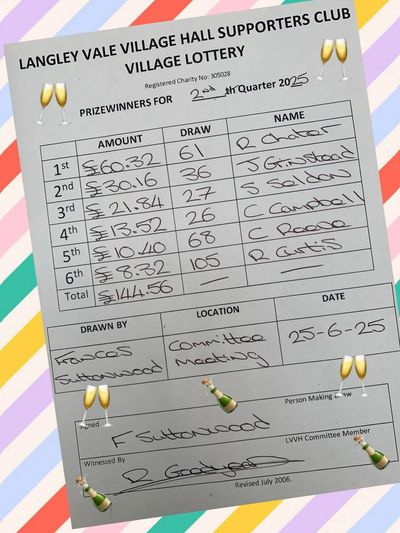 LANGLEY VALE VILLAGE HALL SUPPORTERS CLUB
VILLAGE LOTTERY
Registered Charity No: 305028
PRIZEWINNERS FOR 2nd th Quarter 2025
AMOUNT DRAW NAME
1st £60.32 61 R Chator
2nd £30.16 36 J Grinstead
3rd £21.84 27 S Seldon
4th £13.52 26 C Campbell
5th £10.40 68 C Reeve
6th £8.32 105 R Curtis
Total £144.56 — —
DRAWN BY LOCATION DATE
Frances Suttonwood Committee Meeting 25-6-25
Signed F Suttonwood Person Making Draw
Witnessed By LVVH Committee Member
R
Revised July 2006.